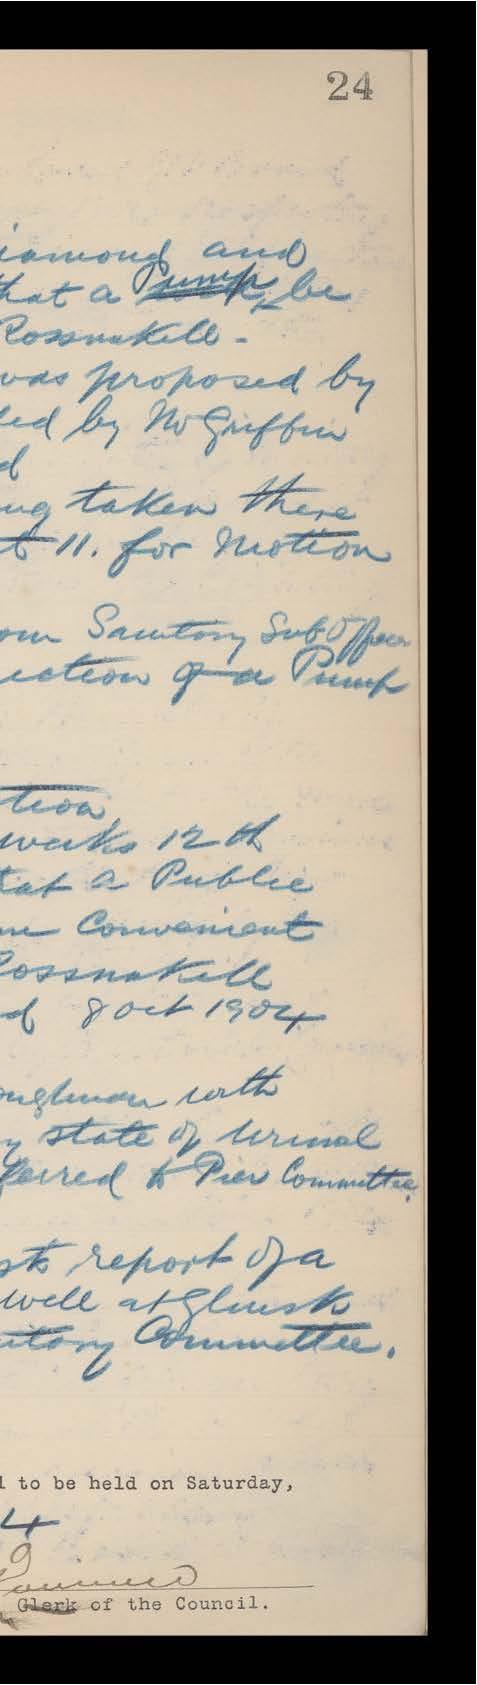 24
iamond and
hat a Pump be
Rossnakill -
was proposed by
ded by Mr Griffin
d
ng taken there
t 11. for Motion
om Sanitary Sub Officer
ection of a Pump
tion
weeks 12th
tat a Public
me Convenient
Rossnakill
d 8 Oct 1904
oughman with
y state of Urinal
ferred to Pier Committee
sts report of a
well at Glinsk
itary Committee.
l to be held on Saturday,
4
Clerk of the Council.